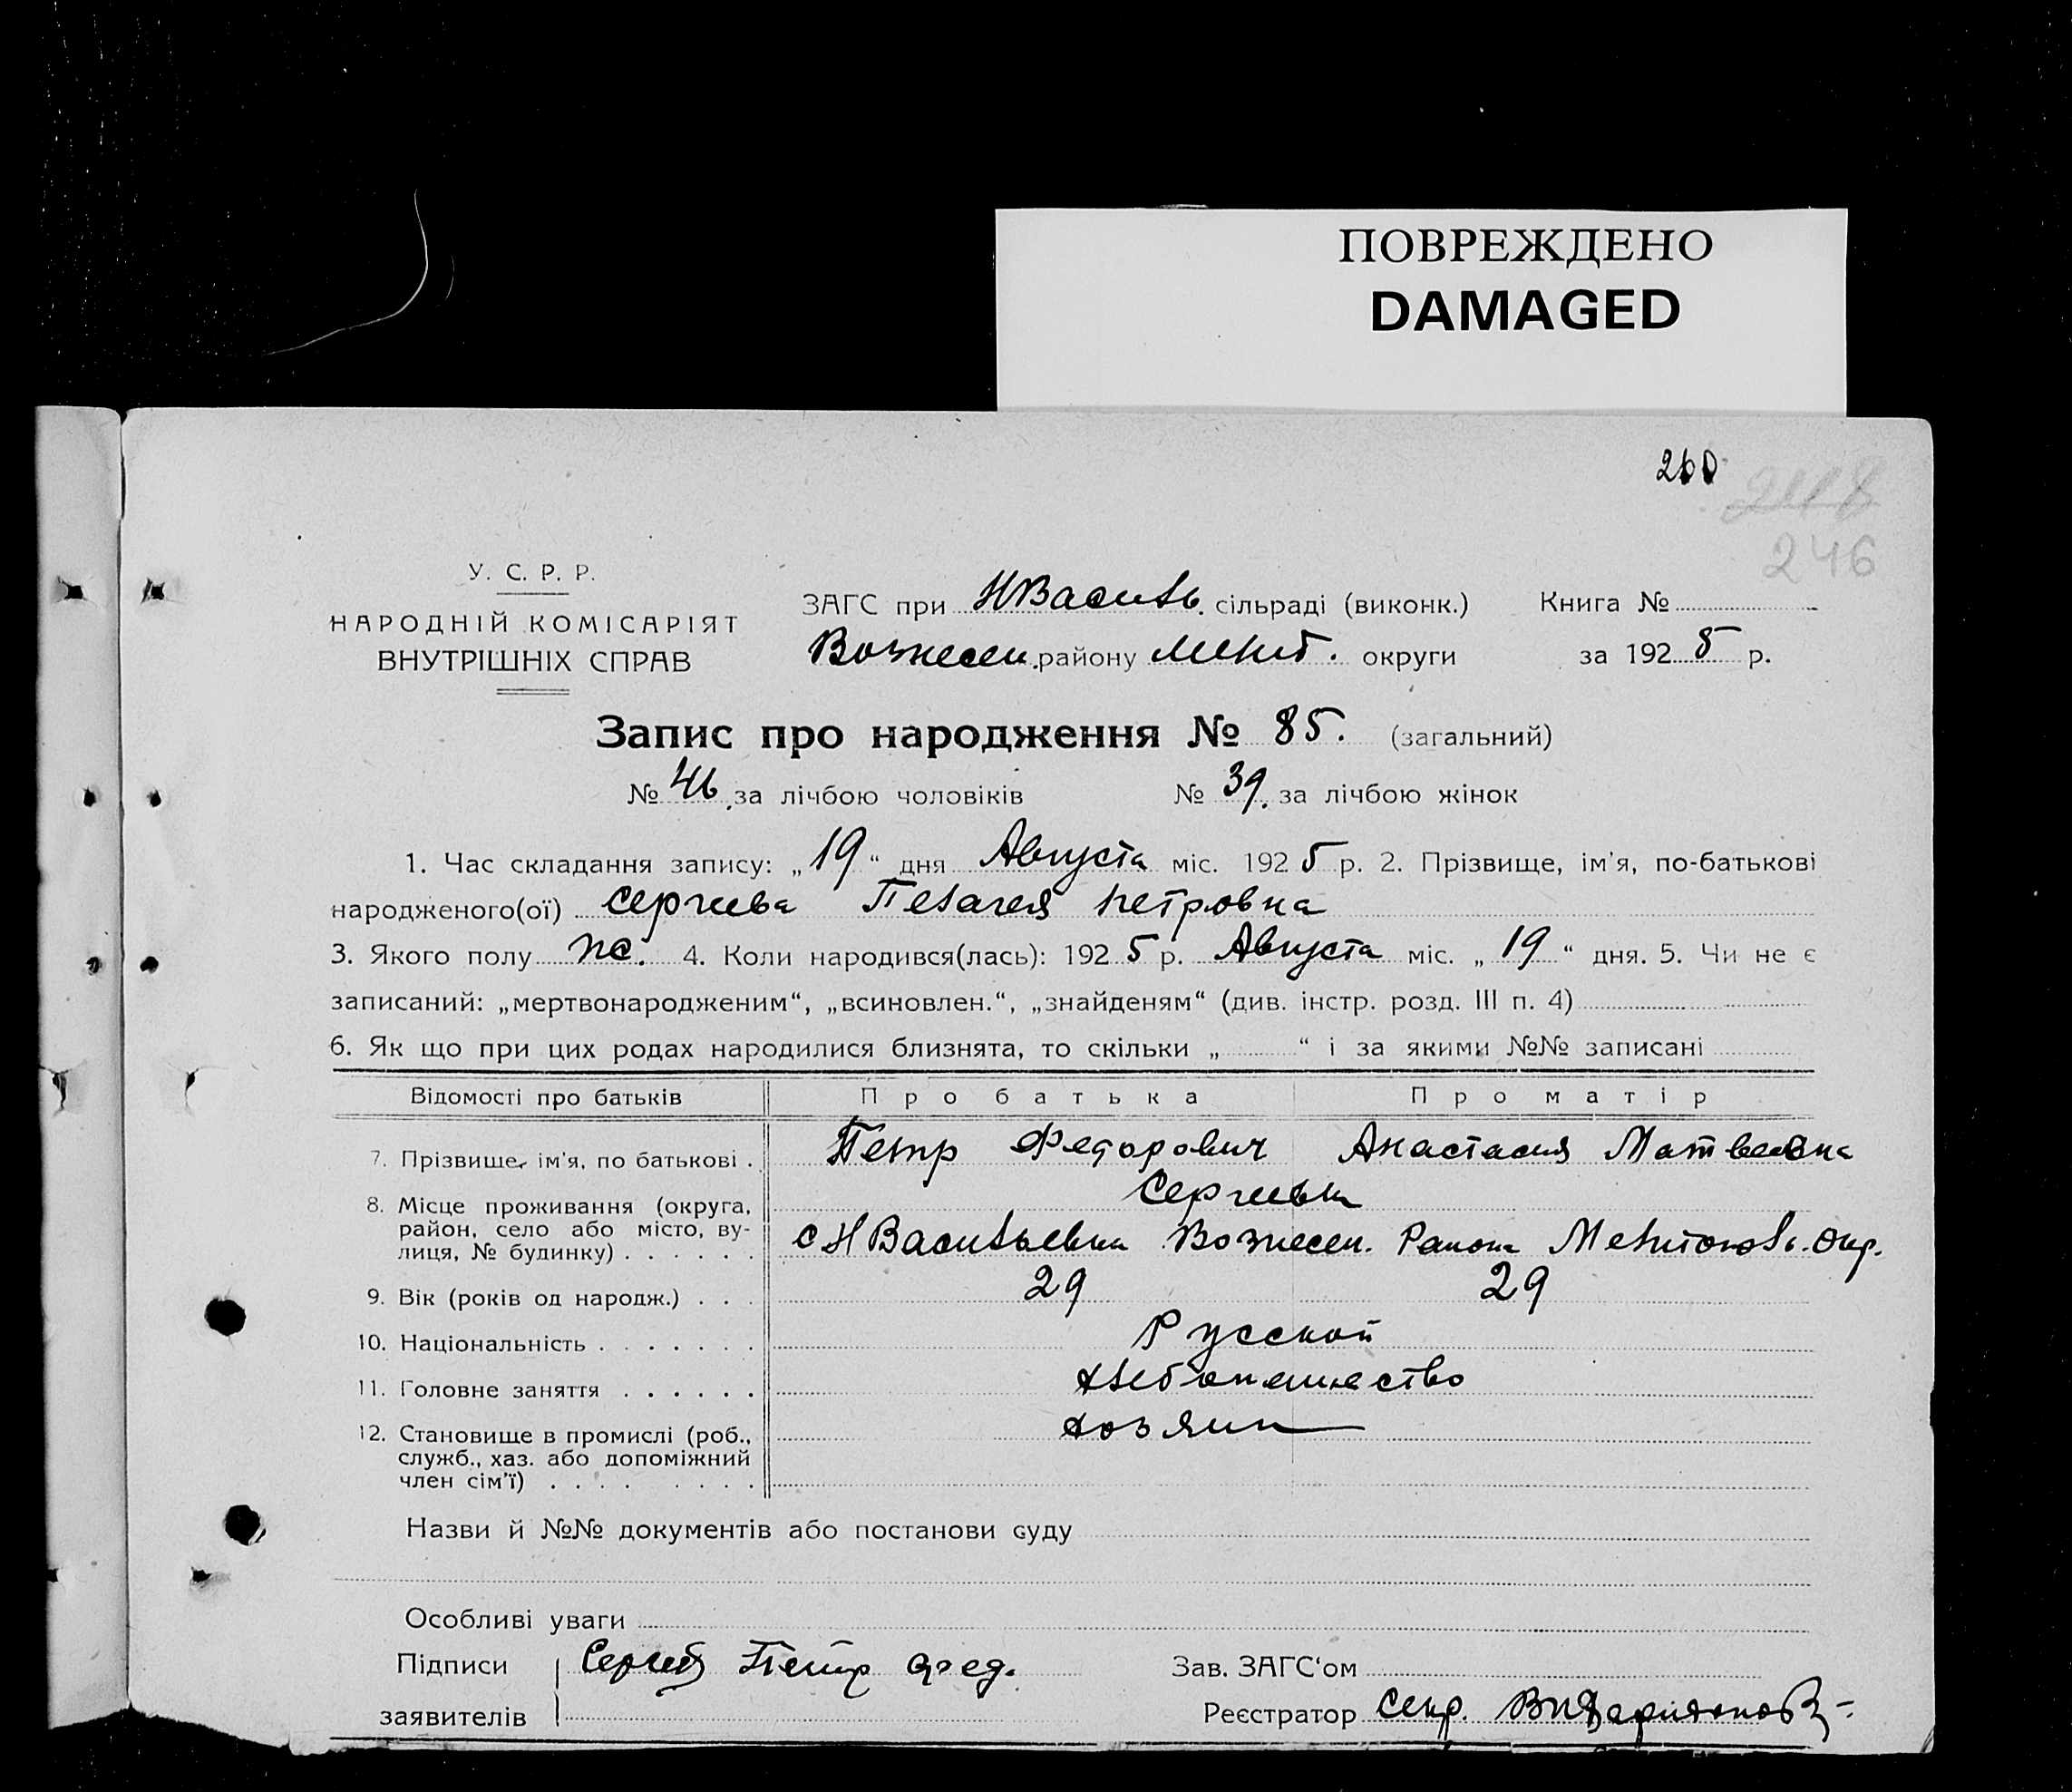 ПОВРЕЖДЕНО
DAMAGED
260
246
У. С. Р. Р.
НАРОДНІЙ КОМІСАРІЯТ
ВНУТРІШНІХ СПРАВ
ЗАГС при НВасиль. сільраді (виконк.) Книга №
Вознесен. району Меліт. округи за 1925 р.
Запис про народження № 85. (загальний)
№ 46 за лічбою чоловіків № 39. за лічбою жінок
1. Час складання запису: „19“ дня Августа міс. 1925 р. 2. Прізвище, ім'я, по-батькові
народженого(ої) Сергиева Пелагея Петровна
3. Якого полу ж. 4. Коли народився(лась): 1925 р. Августа міс. „19“ дня. 5. Чи не є
записаний: „мертвонародженим“, „всиновлен.“, „знайденям“ (див. інстр. розд. III п. 4)
6. Як що при цих родах народилися близнята, то скільки „ “ і за якими №№ записані
Відомості про батьків Про батька Про матір
7. Прізвище, ім'я, по батькові . Петр Федорович Анастасия Матвеевна
Сергиевы
8. Місце проживання (округа, район, село або місто, вулиця, № будинку) . . . . . . с НВасильевка Вознесен. Района Мелитополь. Окр.
9. Вік (років од народж.) . . . 29 29
10. Національність . . . . . . . Русской
11. Головне заняття . . . . . . Хлебопашество
12. Становище в промислі (роб., служб., хаз. або допоміжний член сім'ї) . . . . . . . . Хозяин
Назви й №№ документів або постанови суду
Особливі уваги
Підписи Сергиев Петр Фед. Зав. ЗАГС‘ом
заявителів Реєстратор Секр.